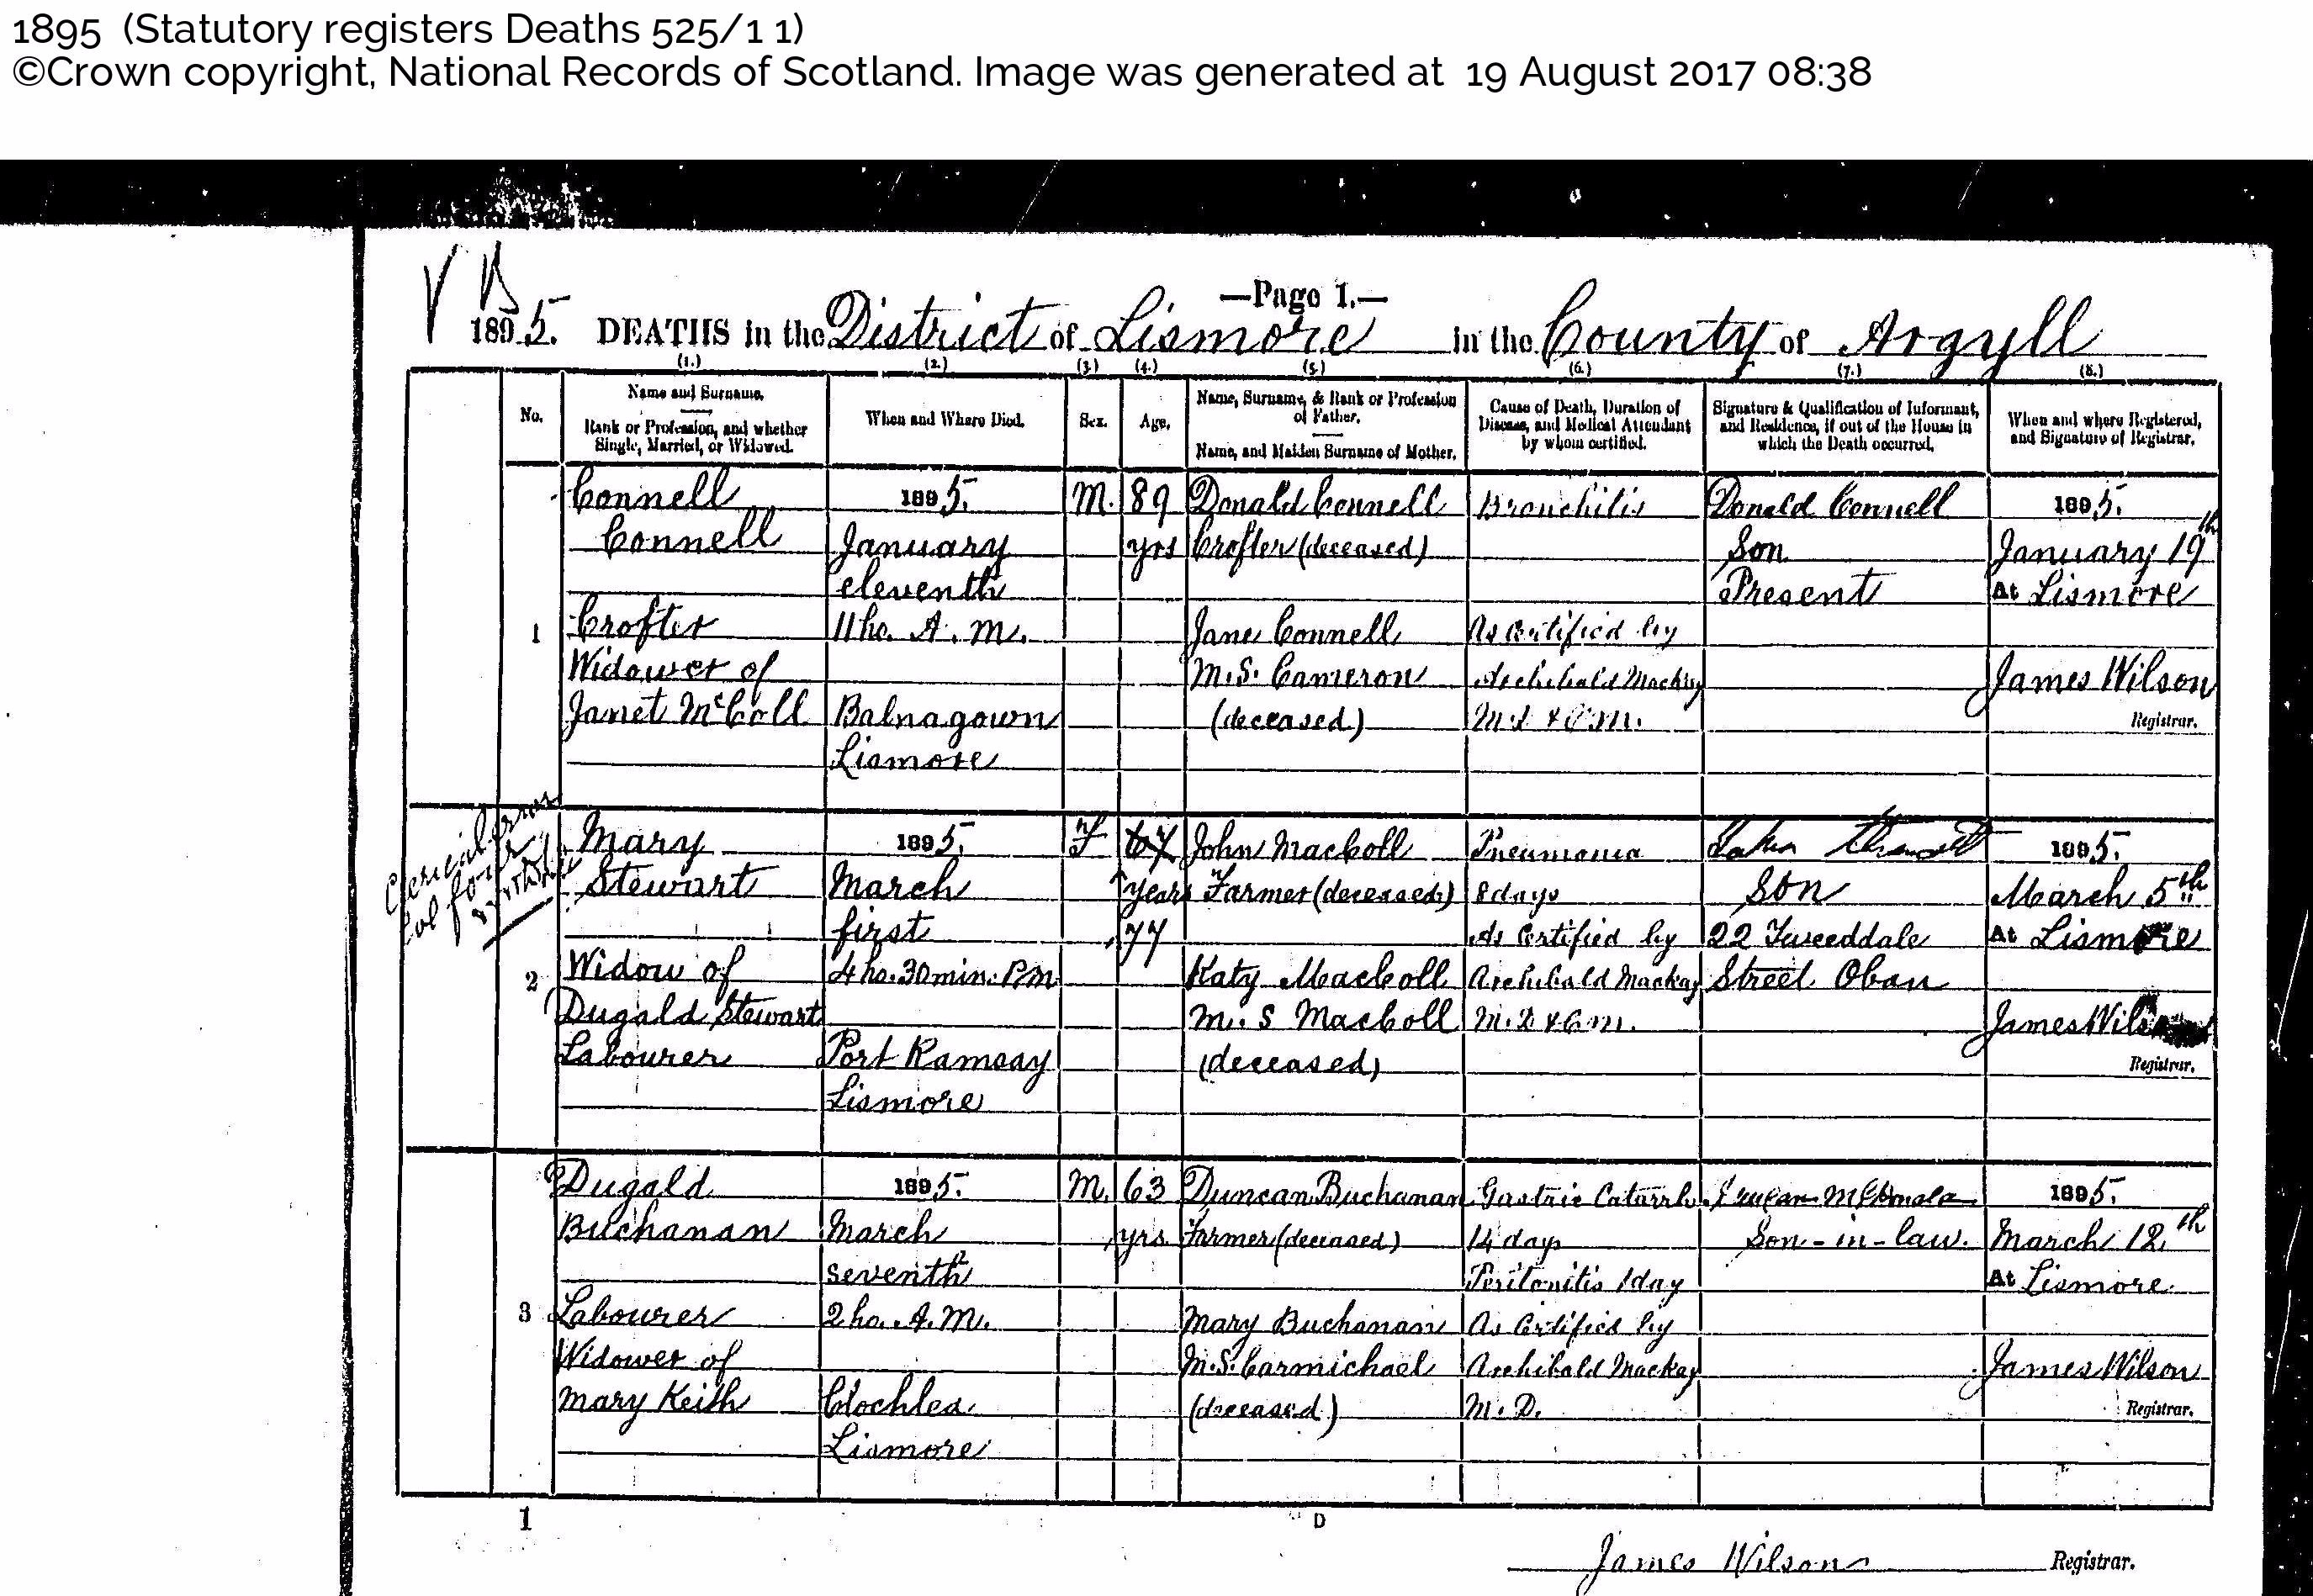 1895 (Statutory registers Deaths 525/1 1)
©Crown copyright, National Records of Scotland. Image was generated at 19 August 2017 08:38
—Page 1.—
1895. DEATHS in the District of Lismore in the County of Argyll
(1.) (2.) (3.) (4.) (5.) (6.) (7.) (8.)
No.
Name and Surname.
Rank or Profession, and whether
Single, Married, or Widowed.
When and Where Died.
Sex.
Age.
Name, Surname, & Rank or Profession
of Father.
Name, and Maiden Surname of Mother.
Cause of Death, Duration of
Disease, and Medical Attendant
by whom certified.
Signature & Qualification of Informant,
and Residence, if out of the House in
which the Death occurred.
When and where Registered,
and Signature of Registrar.
1
Connell
Connell
Crofter
Widower of
Janet McColl
1895.
January
eleventh
11ho. A.M.
Balnagown
Lismore
M.
89
yrs
Donald Connell
Crofter (deceased)
Jane Connell
M.S. Cameron
(deceased)
Bronchitis
As certified by
Archibald Mackay
M.D. & C.M.
Donald Connell
Son
Present
1895.
January 19th
At Lismore
James Wilson
Registrar.
Clerical error
Col four
2
Mary
Stewart
Widow of
Dugald Stewart
Labourer
1895.
March
first
4ho. 30min. P.M.
Port Ramsay
Lismore
F
67
years
77
John MacColl
Farmer (deceased)
Katy MacColl
M.S MacColl
(deceased)
Pneumonia
8 days
As Certified by
Archibald Mackay
M.D & C.M.
Son
22 Tweeddale
Street Oban
1895.
March 5th
At Lismore
James Wilson
Registrar.
3
Dugald
Buchanan
Labourer
Widower of
Mary Keith
1895.
March
seventh
2ho. A.M.
Clochlea
Lismore
M.
63
yrs
Duncan Buchanan
Farmer (deceased)
Mary Buchanan
M.S. Carmichael
(deceased)
Gastric Catarrh.
14 days
Peritonitis 1 day
As Certified by
Archibald Mackay
M.D.
Son-in-law.
1895.
March 12th
At Lismore
James Wilson
Registrar.
1
D
James Wilson Registrar.